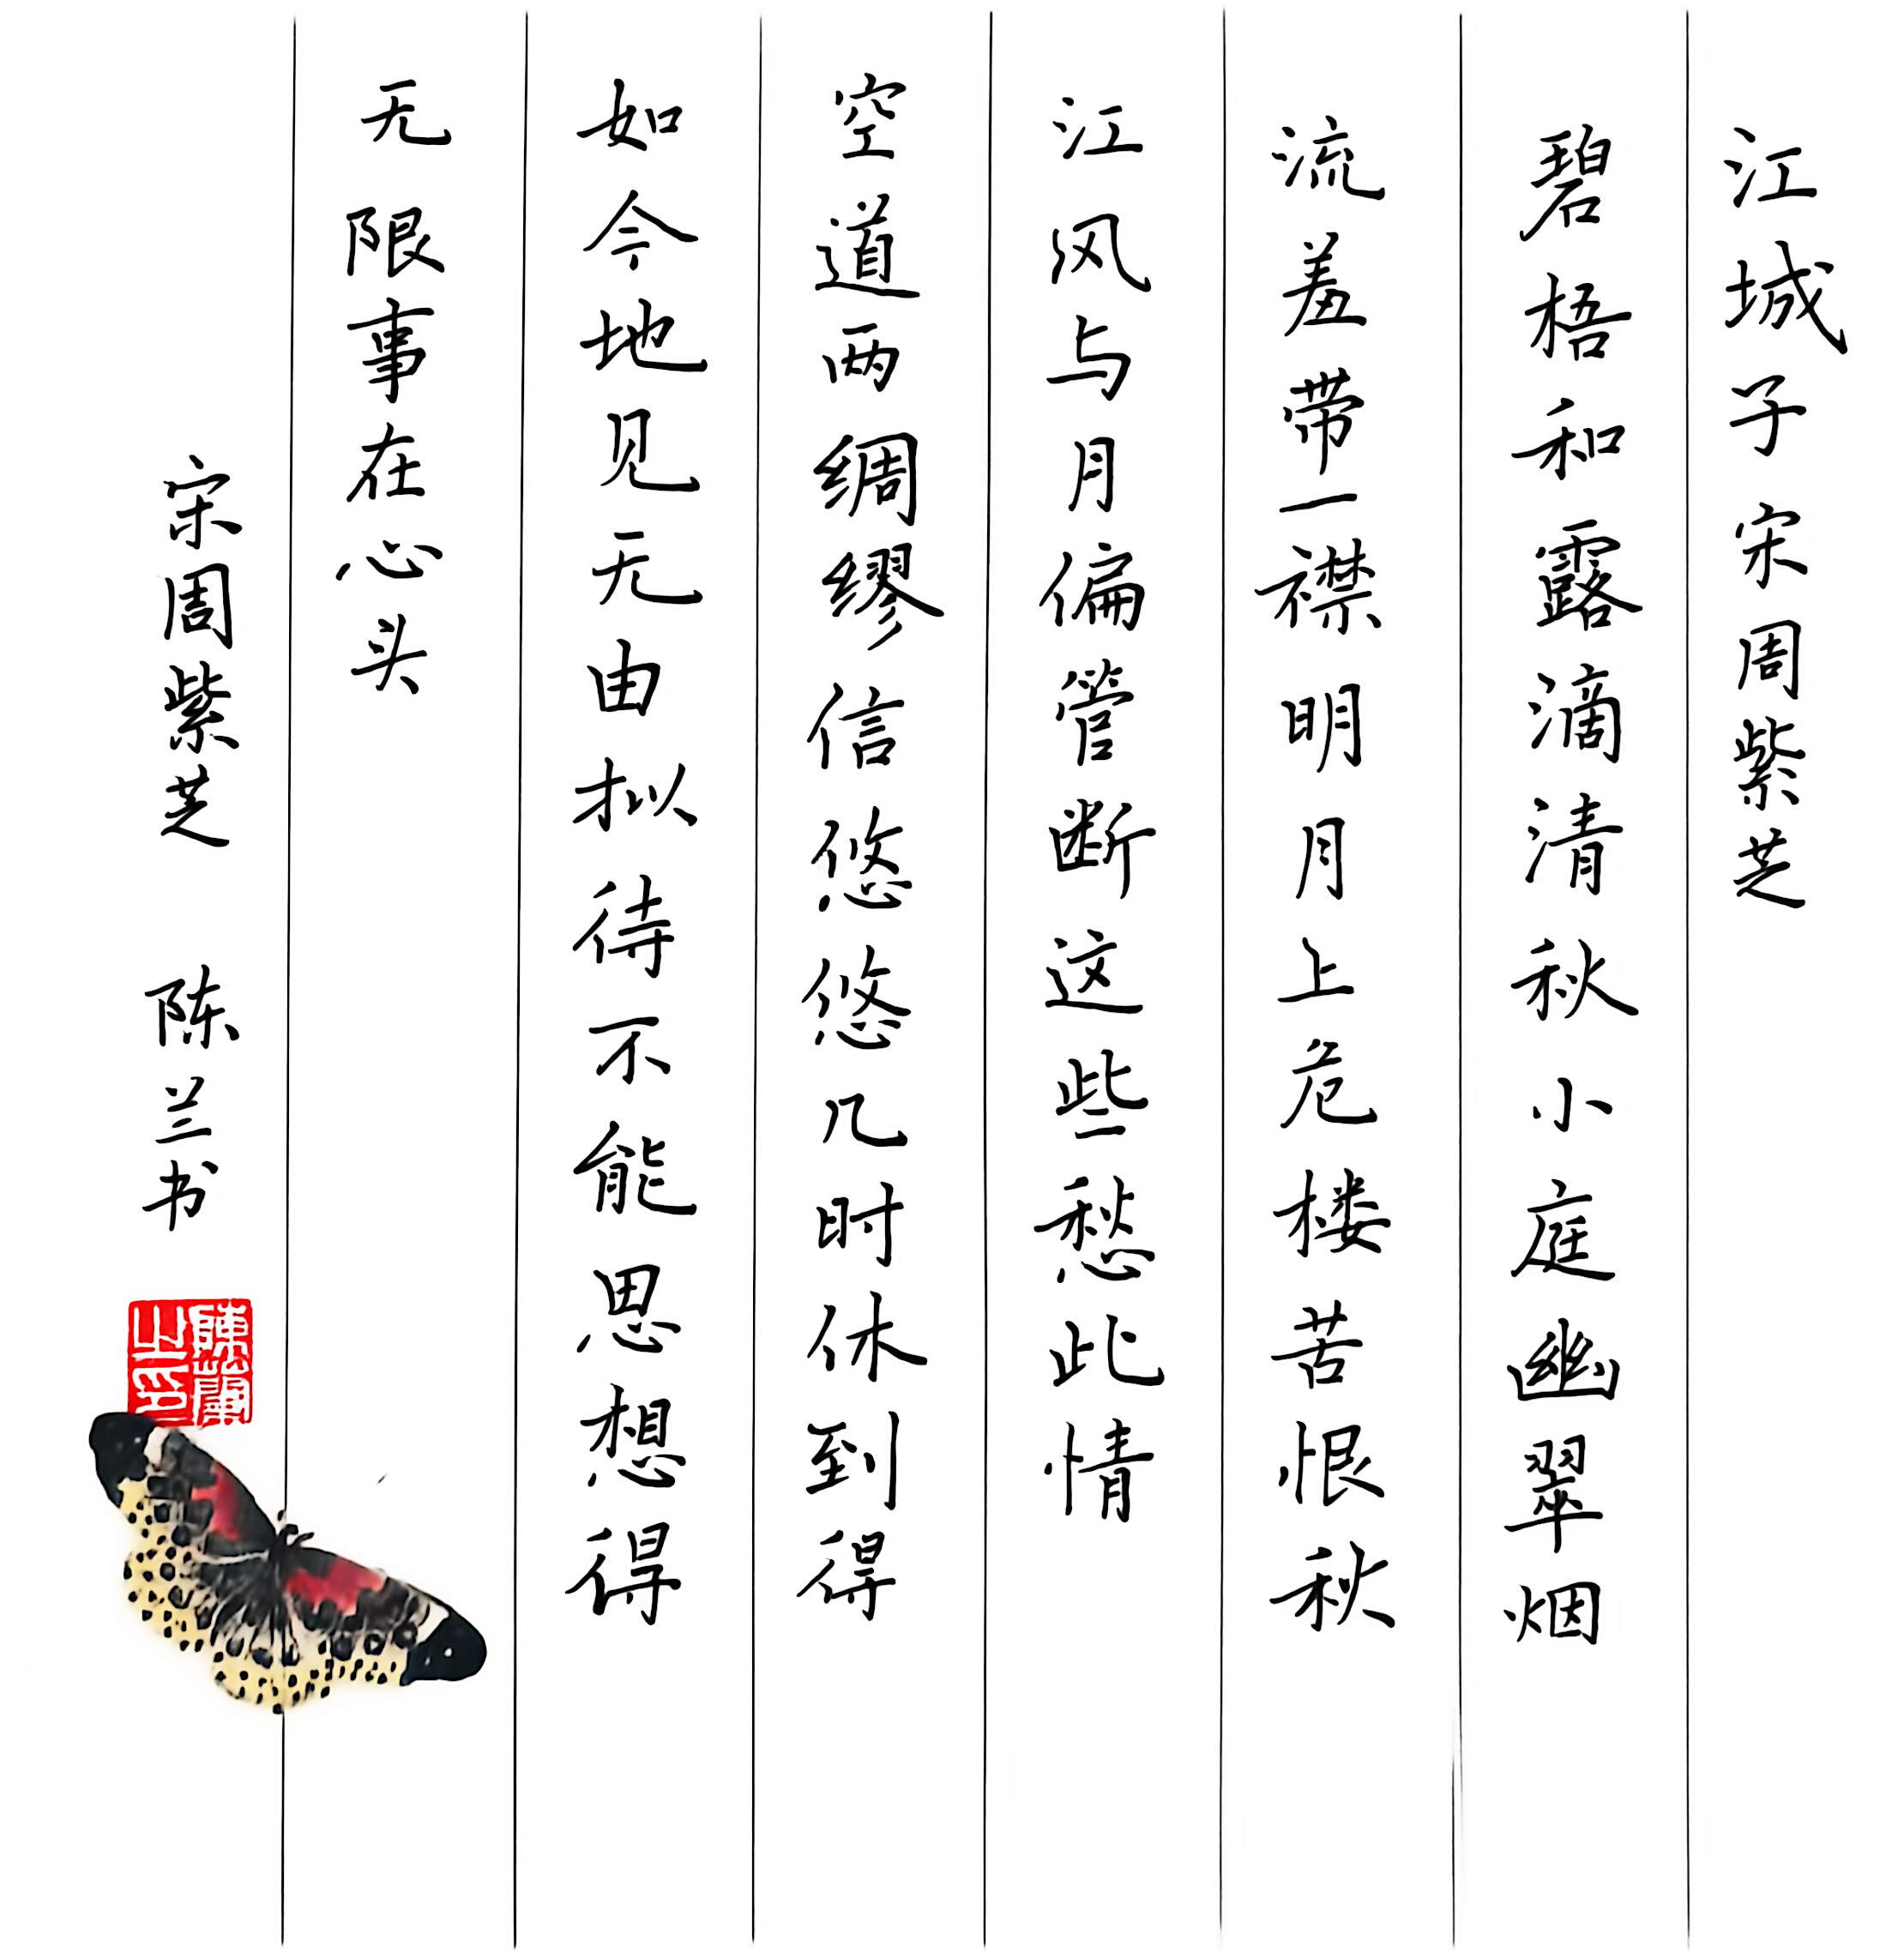 江城子宋周紫芝
碧梧和露滴清秋小庭幽翠烟
流羞带一襟明月上危楼苦恨秋
江风与月偏管断这些愁此情
空道两绸缪信悠悠几时休到得
如今地见无由拟待不能思想得
无限事在心头
宋周紫芝 陈兰书
陳蘭之印